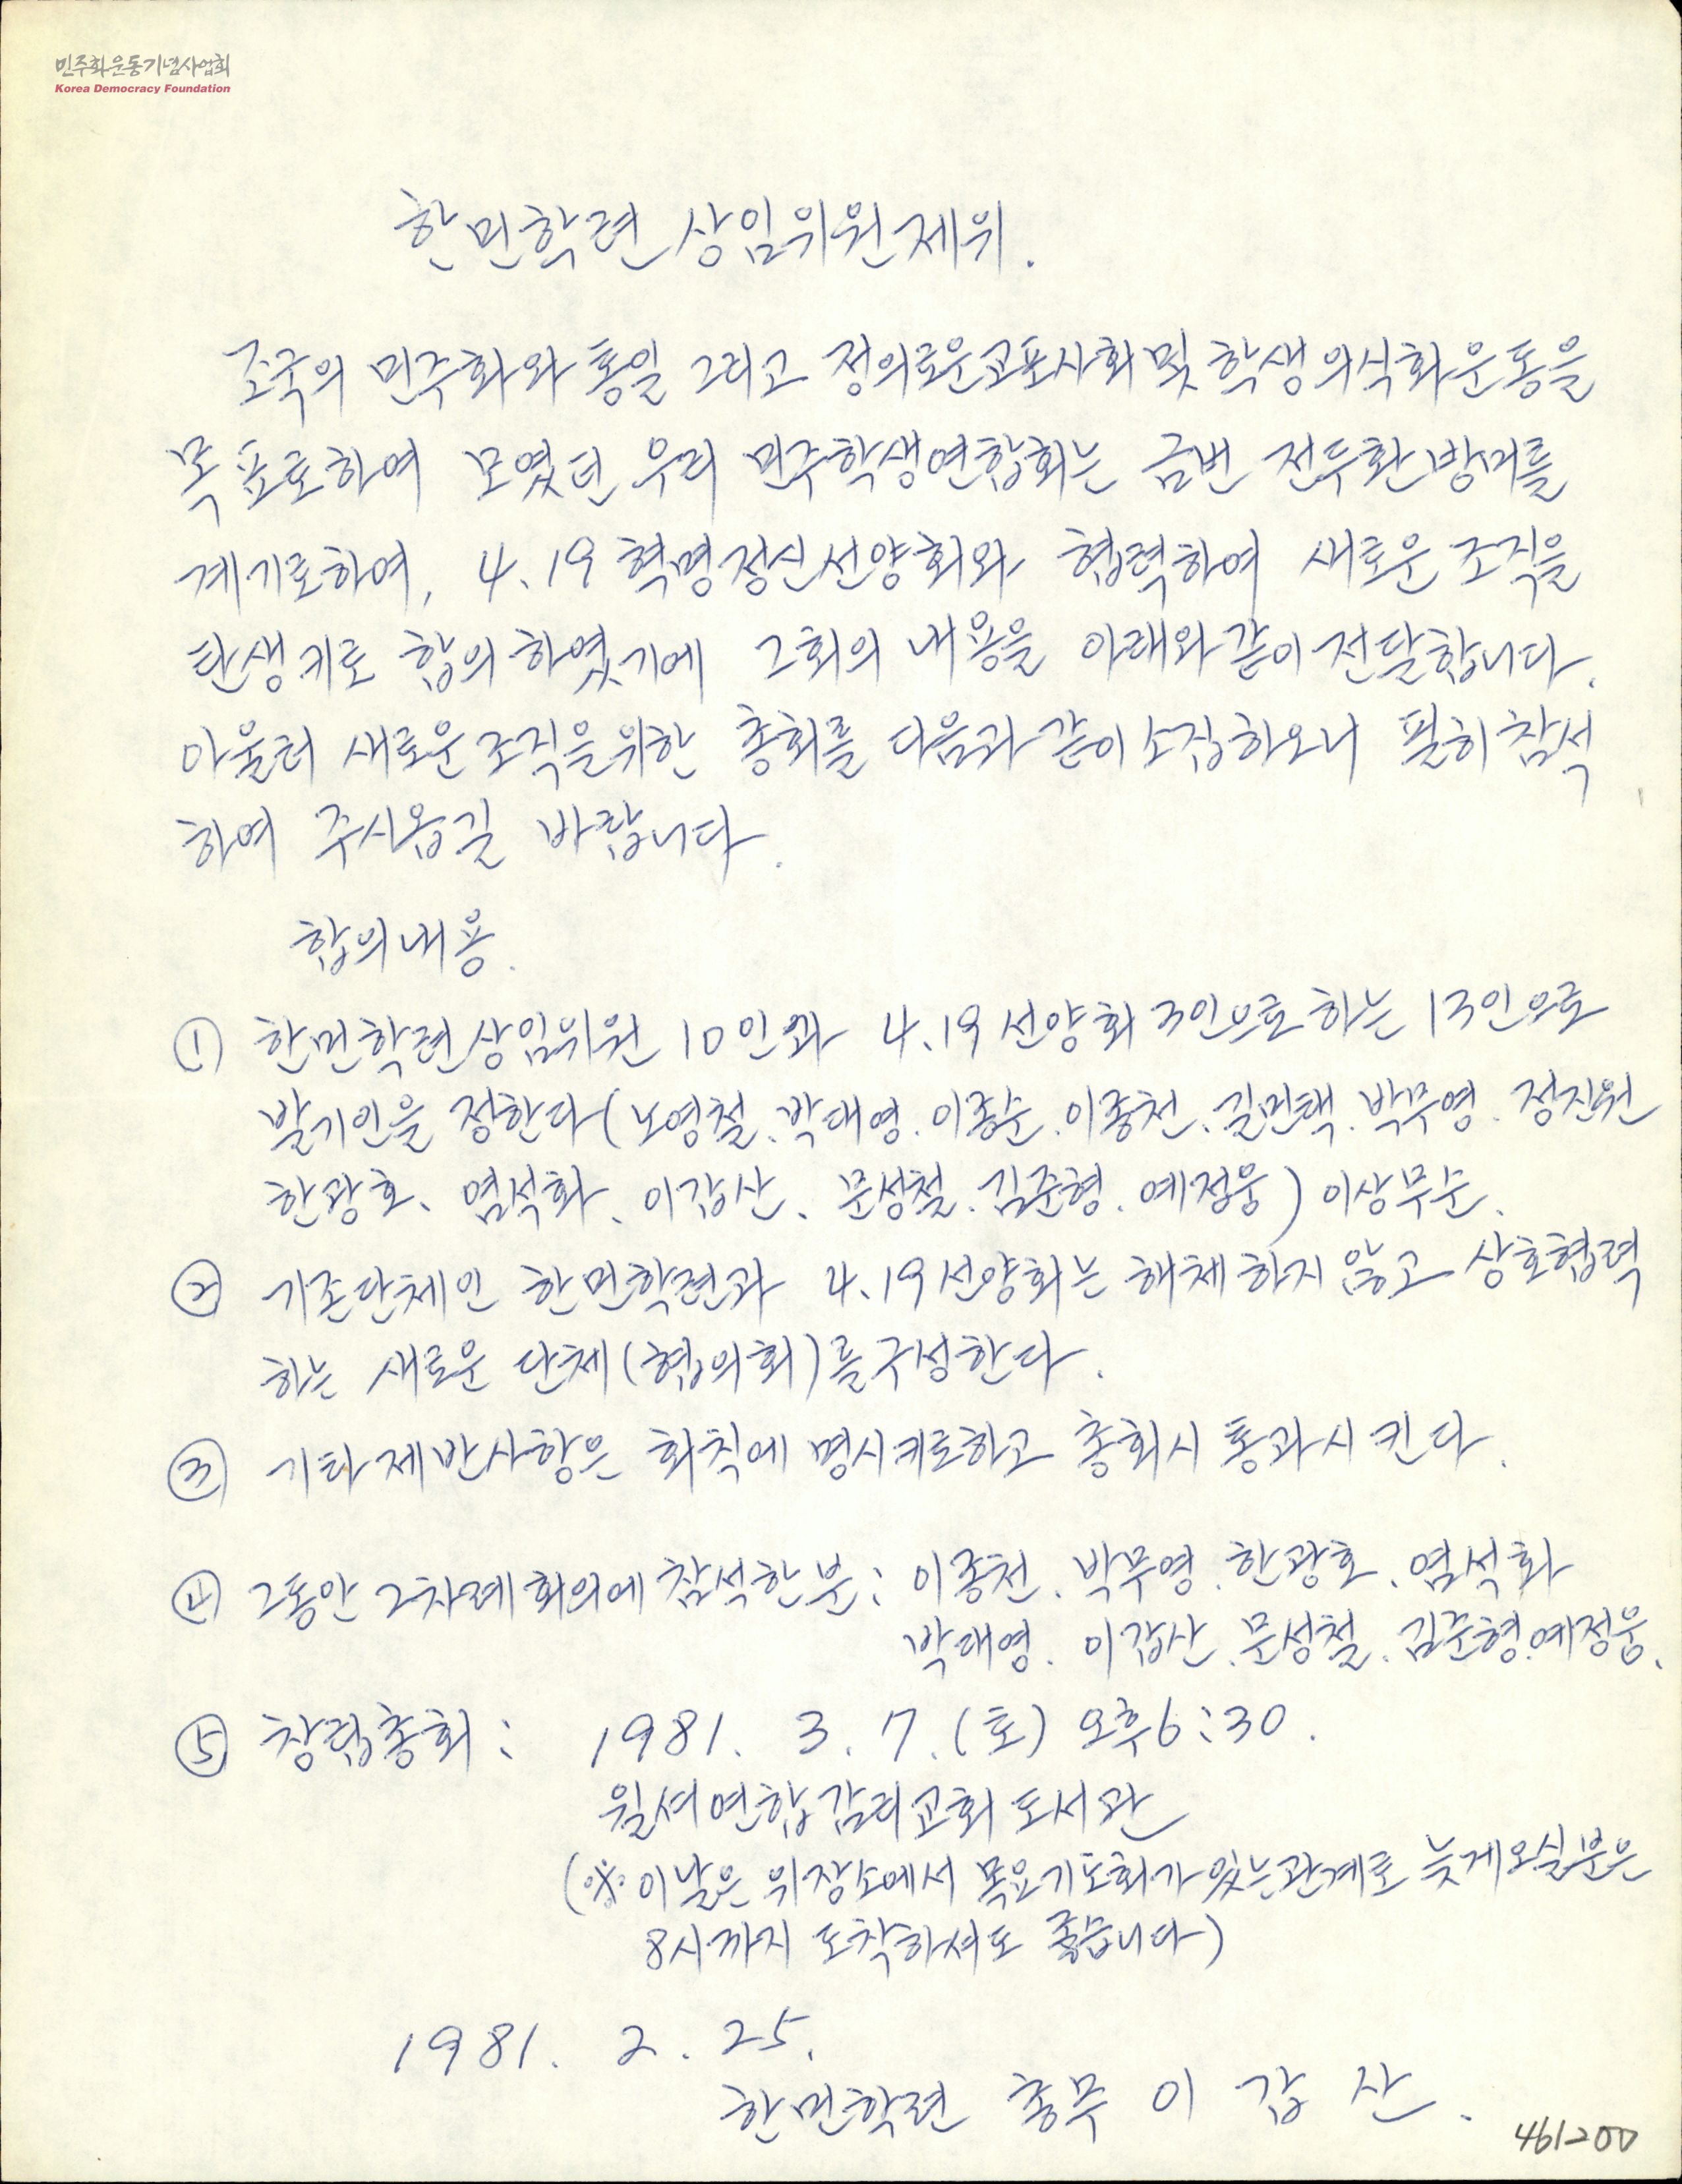 민주화운동기념사업회
Korea Democracy Foundation
한민학련 상임위원제위.
조국의 민주화와 통일 그리고 정의로운교포사회 및 학생의식화운동을
목표로하여 모였던 우리 민주학생연합회는 금번 전두환방미를
계기로하여, 4.19 혁명정신선양회와 협력하여 새로운 조직을
탄생키로 합의하였기에 그회의 내용을 아래와같이 전달합니다.
아울러 새로운조직을위한 총회를 다음과같이소집하오니 필히참석
하여 주시옵길 바랍니다.
합의내용.
① 한민학련상임위원 10인과 4.19선양회 3인으로하는 13인으로
발기인을 정한다(노영철.박대영.이종순.이종천.길민택.박무영.정진원
한광호、염석화、이갑산、문성철.김준형.예정웅) 이상무순.
② 기존단체인 한민학련과 4.19선양회는 해체하지않고 상호협력
하는 새로운 단체(협의회)를구성한다.
③ 기타제반사항은 회칙에 명시키로하고 총회시 통과시킨다.
④ 그동안 2차례회의에 참석한분: 이종천.박무영.한광호.염석화
박대영. 이갑산.문성철.김준형.예정웅.
⑤ 창립총회: 1981. 3. 7.(토) 오후6:30.
윌셔연합감리교회도서관
(※이날은 위장소에서 목요기도회가 있는관계로 늦게오실분은
8시까지 도착하셔도 좋습니다)
1981. 2. 25.
한민학련 총무 이 갑 산.
461200